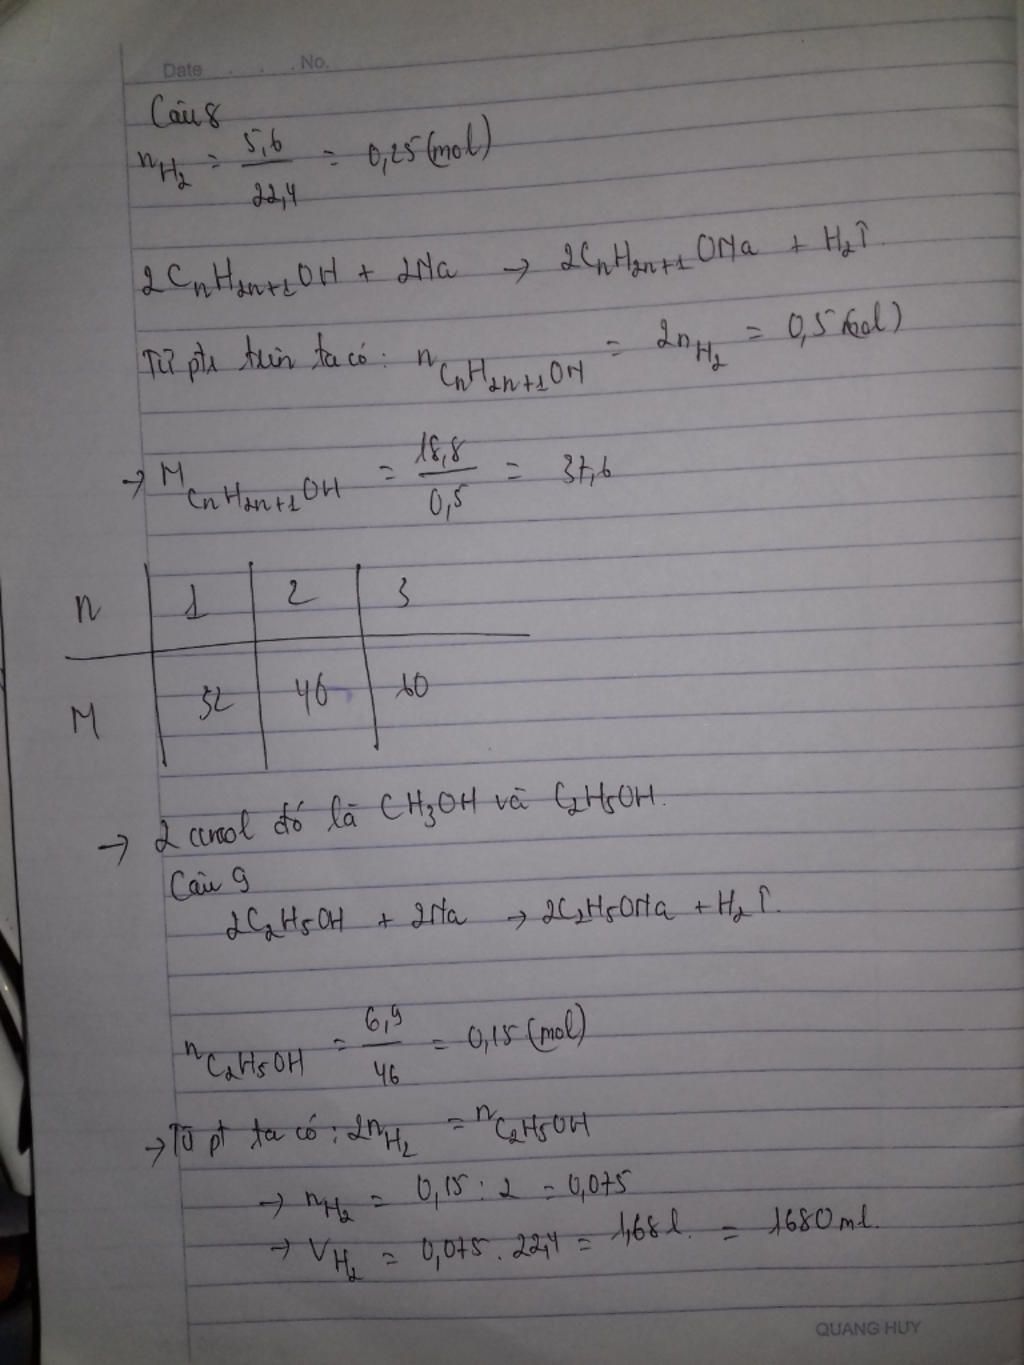 Date . . . . No.
Câu 8
nH2 = 5,6/22,4 = 0,25 (mol)
2CnH2n+1OH + 2Na → 2CnH2n+1ONa + H2↑.
Từ ptr trên ta có: nCnH2n+1OH = 2nH2 = 0,5 (mol)
→ MCnH2n+1OH = 18,8/0,5 = 37,6
n 1 2 3
M 32 46 60
→ 2 ancol đó là CH3OH và C2H5OH.
Câu 9
2C2H5OH + 2Na → 2C2H5ONa + H2↑.
nC2H5OH = 6,9/46 = 0,15 (mol)
→ Từ pt ta có: 2nH2 = nC2H5OH
→ nH2 = 0,15 : 2 = 0,075
→ VH2 = 0,075 . 22,4 = 1,68 l. = 1680 ml.
QUANG HUY